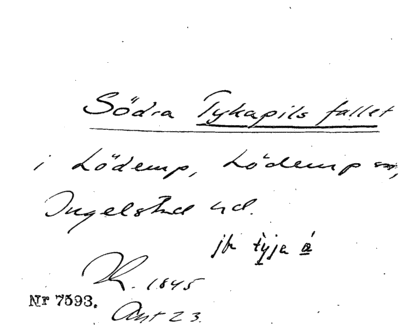 Södra Tykapils fallet
i Lödemp, Lödemp sn,
Ingelstad hd.
jfr tyja å
K. 1845
Nr 7593.
Akt 23.